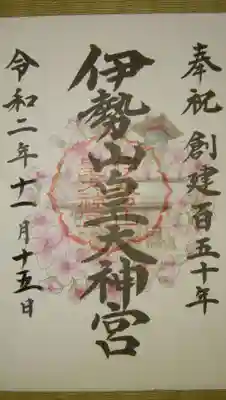 奉祝創建百五十年
伊勢山皇大神宮
令和二年十一月十五日